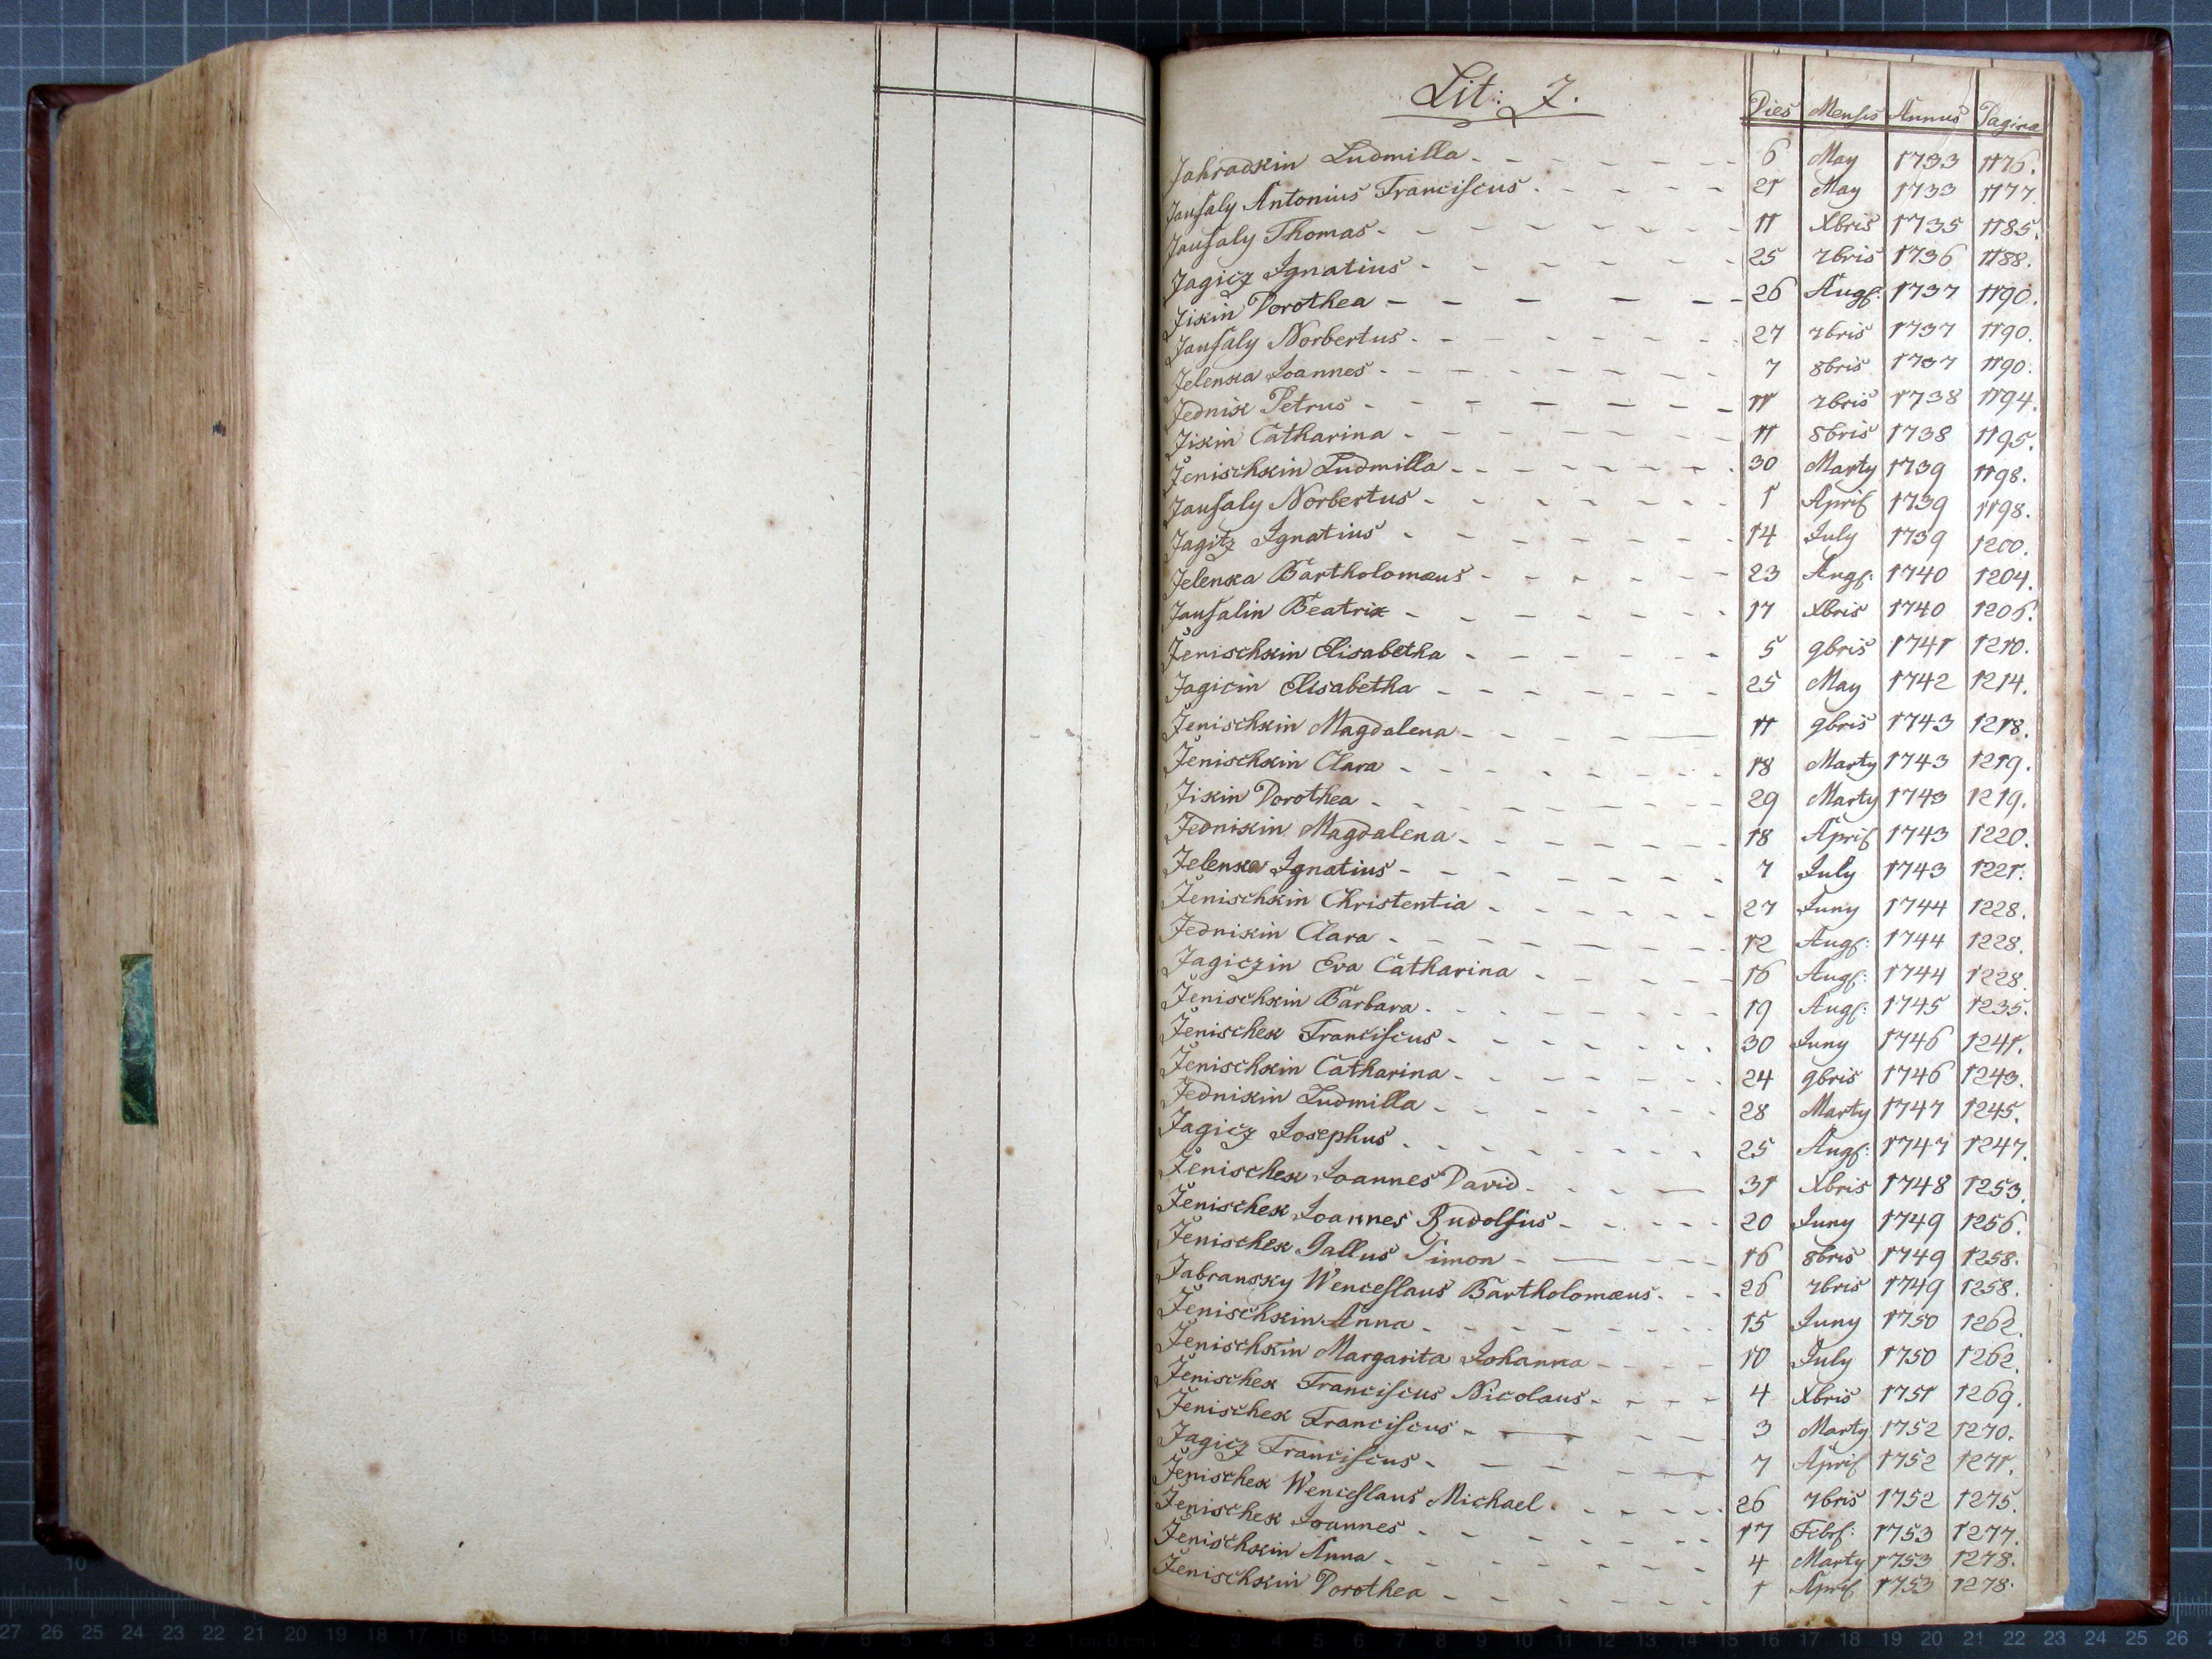 Lit: J.
Dies Mensis Annus Pagina
Jahradkin Ludmilla 6 May 1733 1176.
Jansaly Antonius Franciscus 21 May 1733 1177.
Jansaly Thomas 11 Xbris 1735 1185.
Jagicz Ignatius 25 7bris 1736 1188.
Jikin Dorothea 26 Augs: 1737 1190.
Jansaly Norbertus 27 7bris 1737 1190.
Jelenka Joannes 7 8bris 1737 1190.
Jednik Petrus 11 7bris 1738 1194.
Jikin Catharina 11 8bris 1738 1195.
Jenischkin Ludmilla 30 Marty 1739 1198.
Jansaly Norbertus 1 April 1739 1198.
Jagitz Ignatius 14 July 1739 1200.
Jelenka Bartholomæus 23 Augs: 1740 1204.
Jansalin Beatrix 17 Xbris 1740 1206.
Jenischkin Elisabetha 5 9bris 1741 1210.
Jagicin Elisabetha 25 May 1742 1214.
Jenischkin Magdalena 11 9bris 1743 1218.
Jenischkin Clara 18 Marty 1743 1219.
Jikin Dorothea 29 Marty 1743 1219.
Jednikin Magdalena 18 April 1743 1220.
Jelenka Ignatius 7 July 1743 1221.
Jenischkin Christentia 27 Juny 1744 1228.
Jednikin Clara 12 Augs: 1744 1228.
Jagiczin Eva Catharina 16 Augs: 1744 1228.
Jenischkin Barbara 19 Augs: 1745 1235.
Jenischek Franciscus 30 Juny 1746 1241.
Jenischkin Catharina 24 9bris 1746 1243.
Jednikin Ludmilla 28 Marty 1747 1245.
Jagicz Josephus 25 Augs: 1747 1247.
Jenischek Joannes David 31 Xbris 1748 1253.
Jenischek Joannes Rudolfus 20 Juny 1749 1256.
Jenischek Gallus Simon 16 8bris 1749 1258.
Jabransky Wenceslaus Bartholomæus 26 7bris 1749 1258.
Jenischkin Anna 15 Juny 1750 1262.
Jenischkin Margarita Johanna 10 July 1750 1262.
Jenischek Franciscus Nicolaus 4 Xbris 1751 1269.
Jenischek Franciscus 3 Marty 1752 1270.
Jagicz Franciscus 7 April 1752 1271.
Jenischek Wenceslaus Michael 26 7bris 1752 1275.
Jenischek Joannes 17 Febr: 1753 1277.
Jenischkin Anna 4 Marty 1753 1278.
Jenischkin Dorothea 1 April 1753 1278.
10
27 26 25 24 23 22 21 20 19 18 17 16 15 14 13 12 11 10 9 8 7 6 5 4 3 2 1 cm 0 cm 1 2 3 4 5 6 7 8 9 10 11 12 13 14 15 16 17 18 19 20 21 22 23 24 25 26